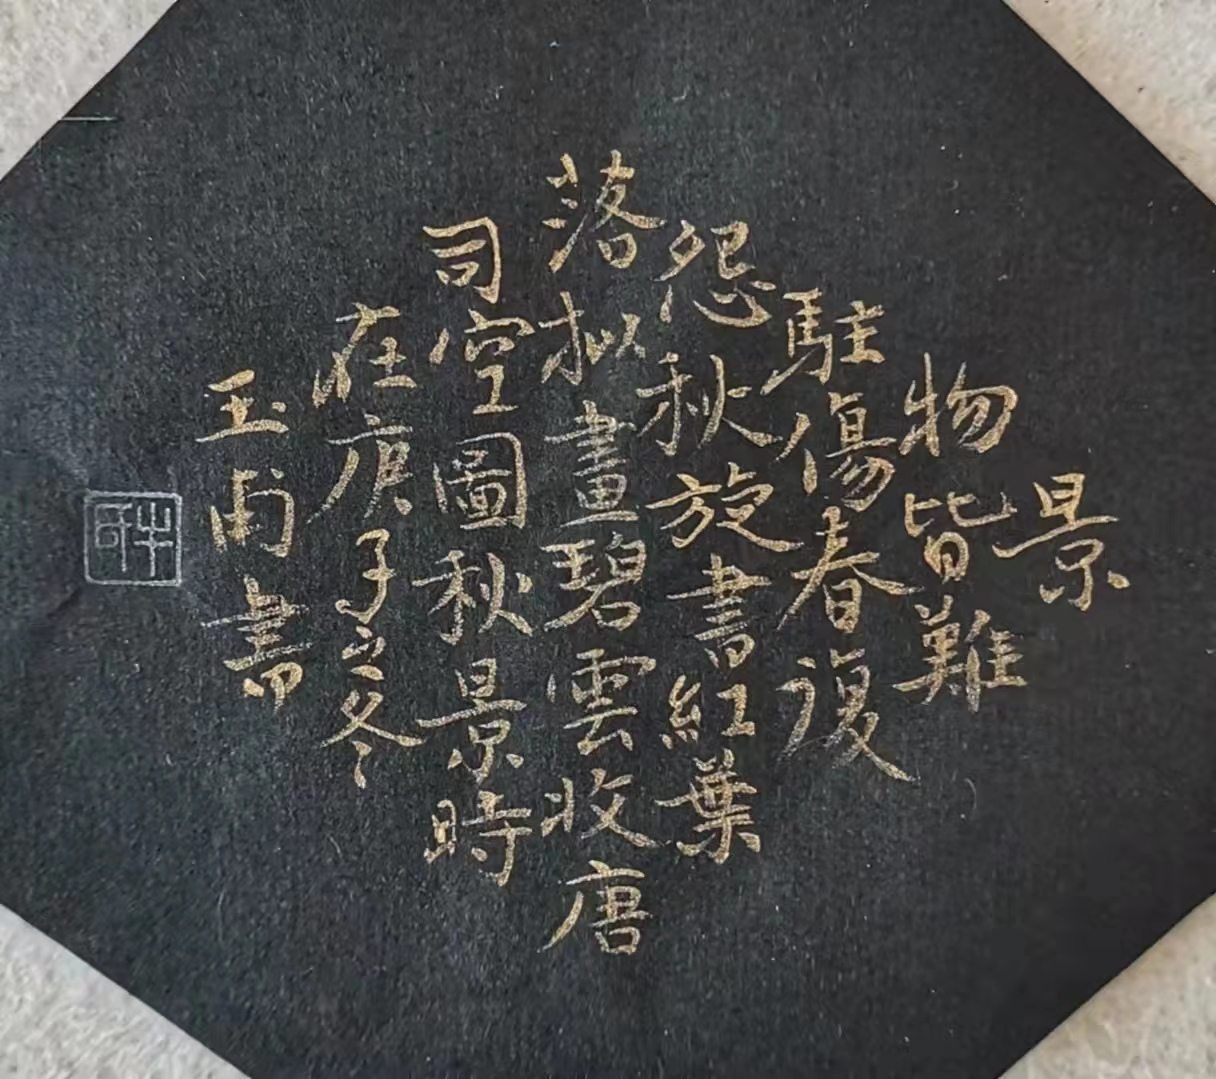 景
物皆難
駐傷春復
怨秋旋書紅葉
落拟畫碧雲收唐
司空圖秋景時
在庚子之冬
玉甫書